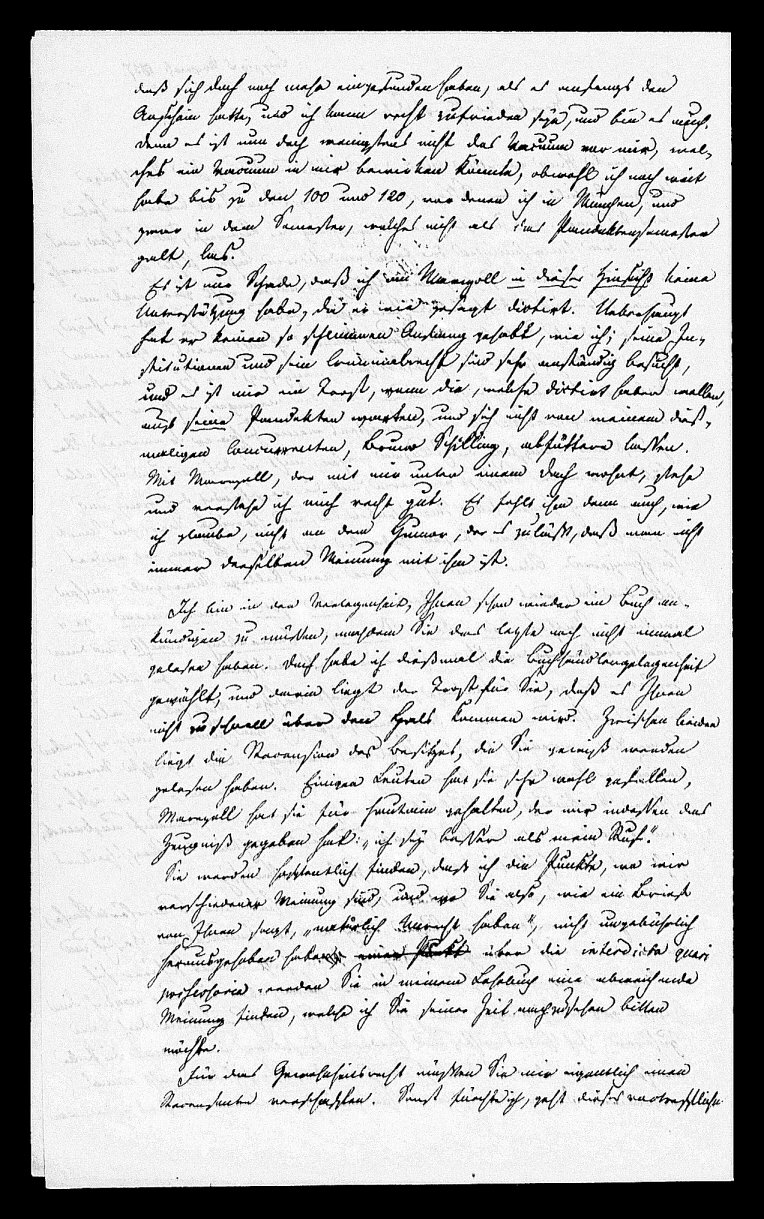 daß sich doch noch mehr eingefunden haben, als es anfangs den
Anschein hatte, und ich kann recht zufrieden sein, und bin es auch.
Denn es ist nun doch wenigstens nicht das Vacuum vor mir, wel-
ches ein Vacuum in mir bewirken könnte, obwohl ich noch weit
habe bis zu den 100 und 120, vor denen ich in München, und
zwar in dem Semester, welches nicht als das Pandektensemester
galt, las.
Es ist nur Schade, daß ich an Marezoll in dieser Hinsicht keine
Unterstützung habe, da er wie gesagt dictirt. Ueberhaupt
hat er keinen so schlimmen Anfang gehabt, wie ich; seine In-
stitutionen und sein Criminalrecht sind sehr anständig besucht,
und es ist mir ein Trost, wenn die, welche dictirt haben wollen,
auf seine Pandekten warten, und sich nicht von meinem dieß-
maligen Concurrenten, Bruno Schilling, abfüttern lassen.
Mit Marezoll, der mit mir unter einem Dach wohnt, stehe
und verstehe ich mich recht gut. Es fehlt ihm denn auch, wie
ich glaube, nicht an dem Humor, der es zuläßt, daß man nicht
immer derselben Meinung mit ihm ist.
Ich bin in der Verlegenheit, Ihnen schon wieder ein Buch an-
kündigen zu müssen, nachdem Sie das letzte noch nicht einmal
gelesen haben. Doch habe ich dießmal die Buchhändlergelegenheit
gewählt, und darin liegt der Trost für Sie, daß es Ihnen
nicht zu schnell über den Hals kommen wird. Zwischen beiden
liegt die Recension des Besitzes, die Sie gewiß werden
gelesen haben. Einigen Leuten hat sie sehr wohl gefallen,
Marezoll hat sie für hautain gehalten, der mir indessen das
Zeugniß gegeben hat: „ich sey besser als mein Ruf."
Sie werden hoffentlich finden, daß ich die Punkte, wo wir
verschiedener Meinung sind, und wo Sie also, wie ein Brief
von Ihnen sagt, „natürlich Unrecht haben", nicht ungebührlich
herausgehoben habe. über die interdicta quasi
possessoria werden Sie in meinem Lehrbuch eine abweichende
Meinung finden, welche ich Sie seiner Zeit nachzusehen bitten
möchte.
Für das Gewohnheitsrecht müßten Sie mir eigentlich einen
Recensenten verschaffen. Sonst fürchte ich, geht dieses vortreffliche